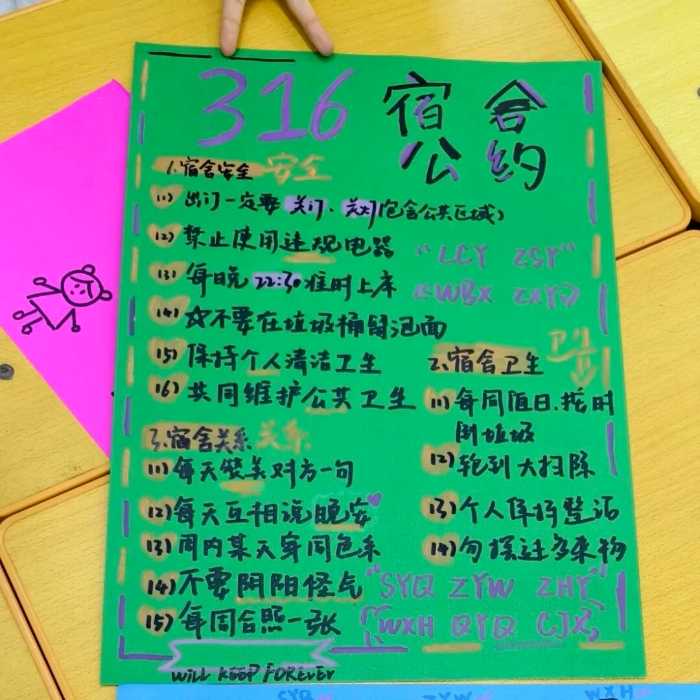 316 宿舍
公约
1.宿舍安全 安全
(1) 出门一定要关门、关灯(包含公共区域)
(2) 禁止使用违规电器
"LCY ZSY"
(3) 每晚22:30准时上床
《WBX ZXY》
(4) ☆不要在垃圾桶留泡面
(5) 保持个人清洁卫生
(6) 共同维护公共卫生
2.宿舍卫生 卫生
(1) 每周值日,按时
倒垃圾
(2) 轮到大扫除
(3) 个人保持整洁
(4) 勿摆过多杂物
3.宿舍关系 关系
(1) 每天赞美对方一句
(2) 每天互相说晚安
(3) 周内某天穿同色系
(4) 不要阴阳怪气
(5) 每周合照一张
"SYQ ZYW ZHY"
WXH QYQ CJX
WILL KEEP FOREVER
CYQ ZYW WXH